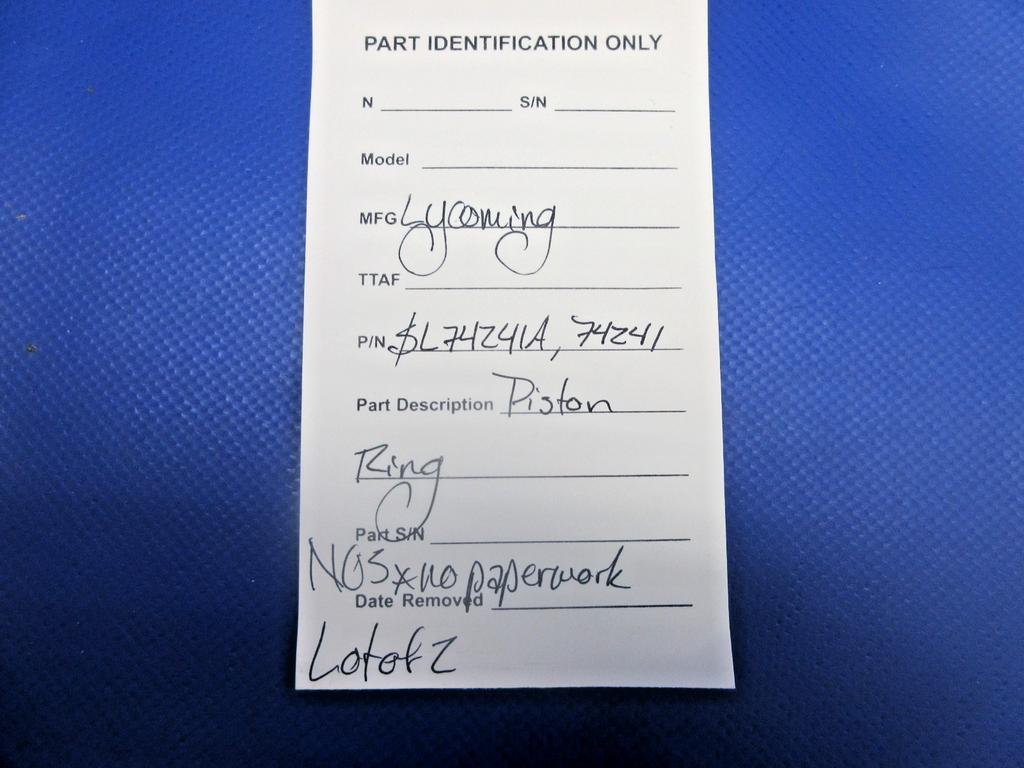 PART IDENTIFICATION ONLY
N S/N
Model
MFG Lycoming
TTAF
P/N $L74241A, 74241
Part Description Piston
Ring
Part S/N
NOS * no paperwork
Date Removed
Lot of 2